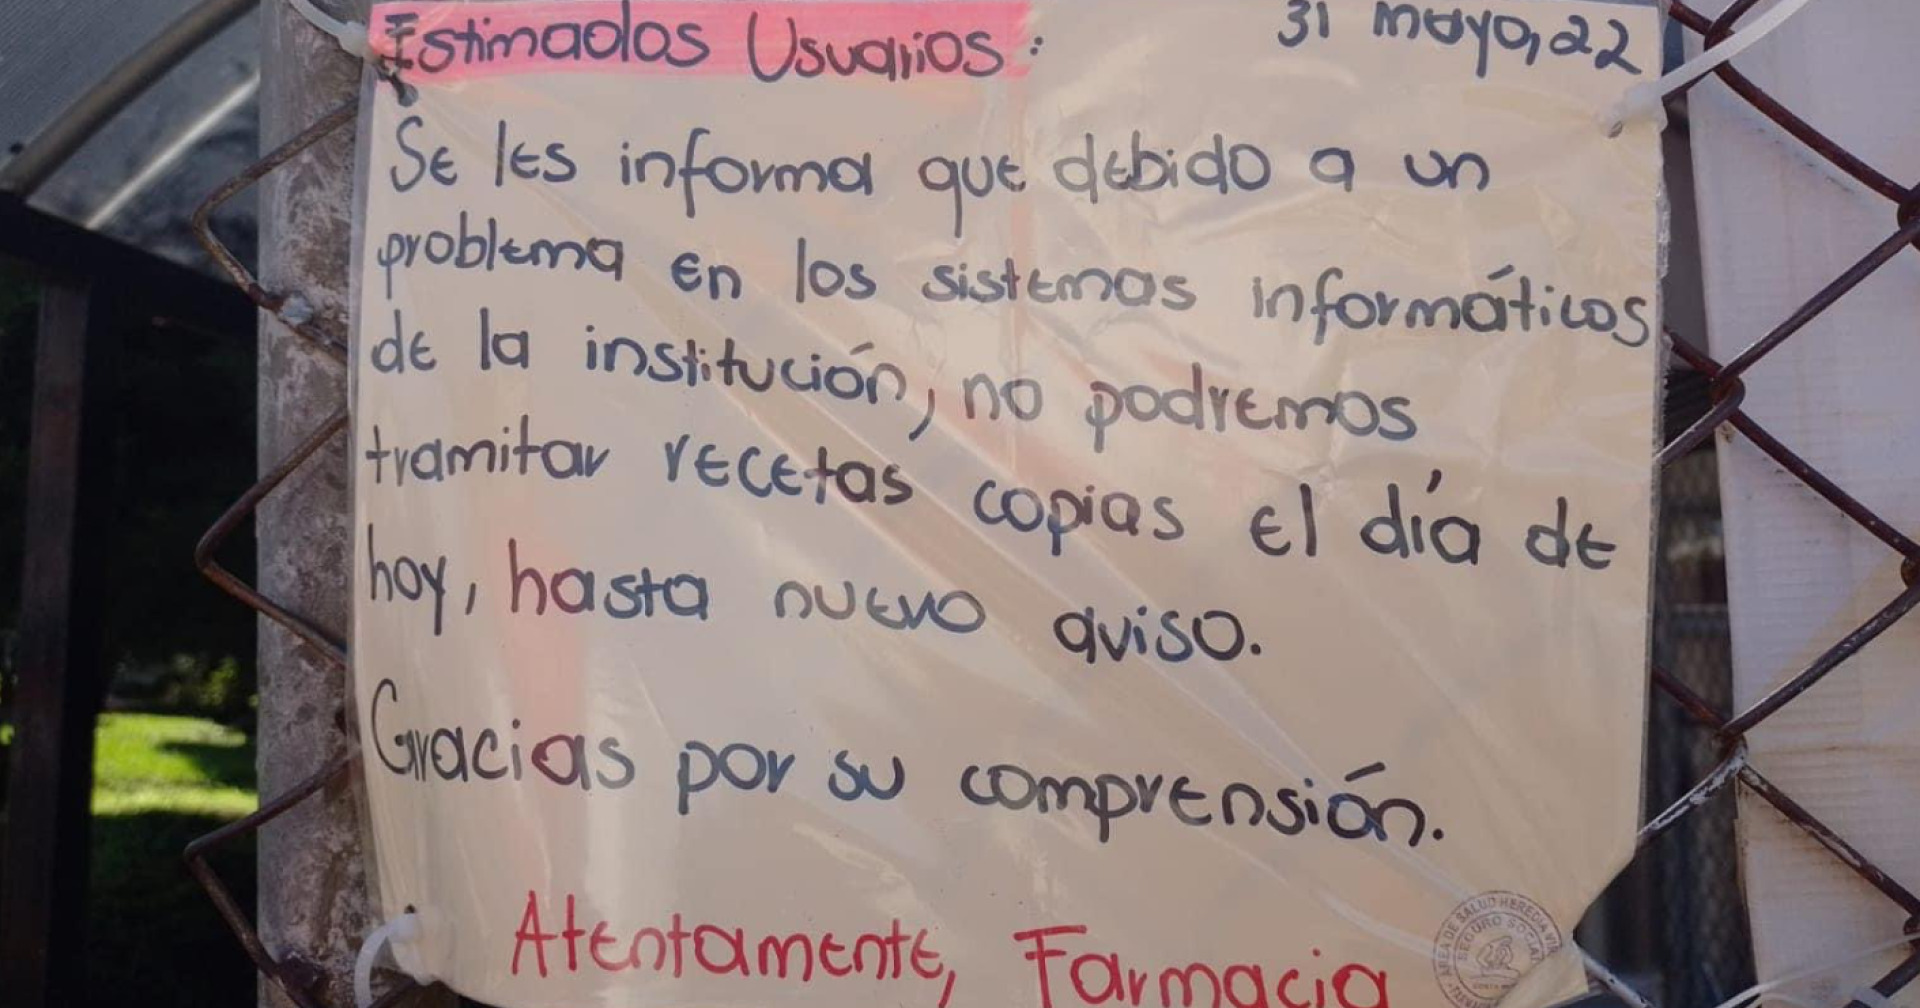 Estimados Usuarios: 31 mayo, 22
Se les informa que debido a un
problema en los sistemas informáticos
de la institución, no podremos
tramitar recetas copias el día de
hoy, hasta nuevo aviso.
Gracias por su comprensión.
Atentamente, Farmacia
AREA DE SALUD HEREDIA
SEGURO SOCIAL